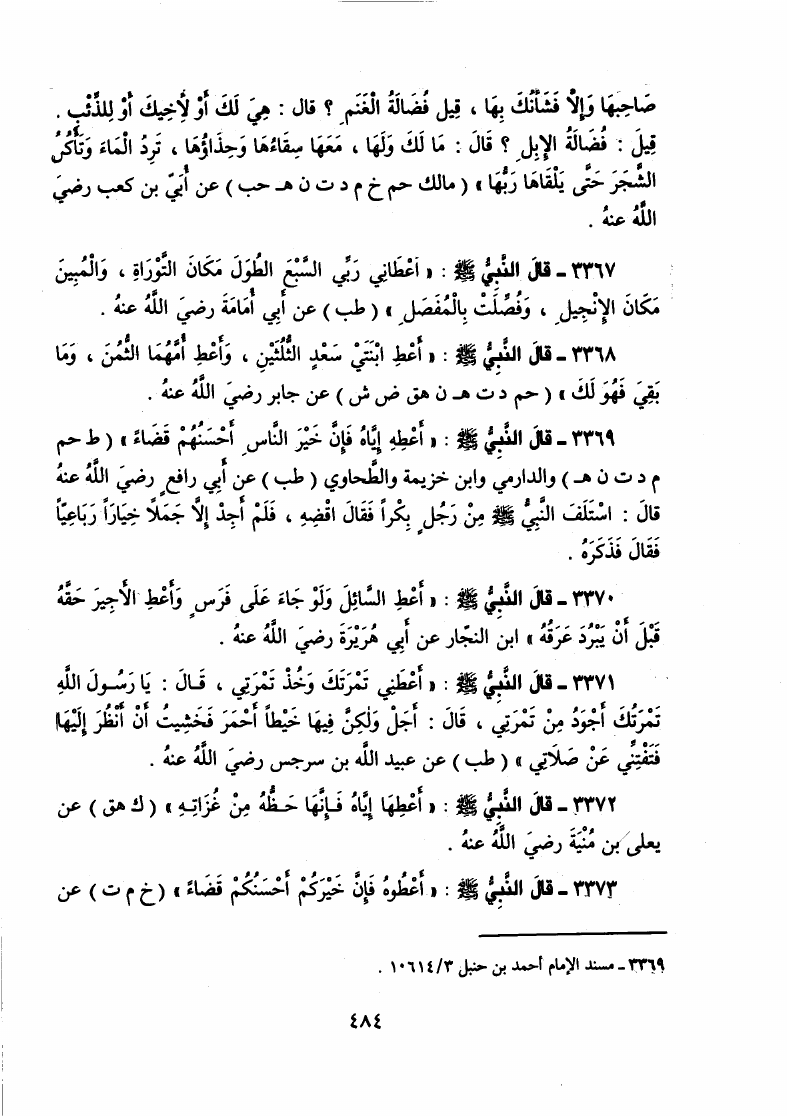 صَاحِبُهَا وَإِلَّا فَشَأْنُكَ بِهَا ، قِيل فُضَالَةُ الْغَنَمِ ؟ قال : هِيَ لَكَ أَوْ لِأَخِيكَ أَوْ لِلذِّئْبِ .
قِيلَ : فُضَالَةُ الإِبِلِ ؟ قَالَ : مَا لَكَ وَلَهَا ، مَعَهَا سِقَاءُهَا وَحِذَاؤُهَا ، تَرِدُ الْمَاءَ وَتَأْكُلُ
الشَّجَرَ حَتَّى يَلْقَاهَا رَبُّهَا » ( مالك حم خ م د ت ن هـ حب ) عن أُبَيّ بن كعب رضيَ
اللَّهُ عنهُ .
٣٣٦٧ ـ قالَ النَّبِيُّ ﷺ : « أَعْطَانِي رَبِّي السَّبْعَ الطُّوَلَ مَكَانَ التَّوْرَاةِ ، وَالْمُبِينَ
مَكَانَ الإِنْجِيلِ ، وَفُضِّلَتْ بِالْمُفَصَّلِ » ( طب ) عن أَبي أُمَامَةَ رضيَ اللَّهُ عنهُ .
٣٣٦٨ ـ قالَ النَّبِيُّ ﷺ : « أَعْطِ ابْنَتَيْ سَعْدٍ الثُّلُثَيْنِ ، وَأَعْطِ أُمَّهُمَا الثُّمُنَ ، وَمَا
بَقِيَ فَهُوَ لَكَ » ( حم د ت هـ ن هق ض ش ) عن جابر رضيَ اللَّهُ عنهُ .
٣٣٦٩ ـ قالَ النَّبِيُّ ﷺ : « أَعْطِهِ إِيَّاهُ فَإِنَّ خَيْرَ النَّاسِ أَحْسَنُهُمْ قَضَاءً » ( ط حم
م د ت ن هـ ) والدارمي وابن خزيمة والطَّحاوي ( طب ) عن أَبي رافعٍ رضيَ اللَّهُ عنهُ
قالَ : اسْتَلَفَ النَّبِيُّ ﷺ مِنْ رَجُلٍ بِكْراً فَقَالَ اقْضِهِ ، فَلَمْ أَجِدْ إِلاَّ جَمَلاً خِيَاراً رَبَاعِيّاً
فَقَالَ فَذَكَرَهُ .
٣٣٧٠ ـ قالَ النَّبِيُّ ﷺ : « أَعْطِ السَّائِلَ وَلَوْ جَاءَ عَلَى فَرَسٍ وَأَعْطِ الأَجِيرَ حَقَّهُ
قَبْلَ أَنْ يَبْرُدَ عَرَقُهُ » ابن النجّار عن أَبي هُرَيْرَةَ رضيَ اللَّهُ عنهُ .
٣٣٧١ ـ قالَ النَّبِيُّ ﷺ : « أَعْطِنِي تَمْرَتَكَ وَخُذْ تَمْرَتِي ، قَـالَ : يَا رَسُـولَ اللَّهِ
تَمْرَتُكَ أَجْوَدُ مِنْ تَمْرَتِي ، قَالَ : أَجَلْ وَلٰكِنَّ فِيهَا خَيْطاً أَحْمَرَ فَخَشِيتُ أَنْ أَنْظُرَ إِلَيْهَا
فَتَفْتِنَنِّي عَنْ صَلَاتِي » ( طب ) عن عبيد الله بن سرجس رضيَ اللَّهُ عنهُ .
٣٣٧٢ ـ قالَ النَّبِيُّ ﷺ : « أَعْطِهَا إِيَّاهُ فَـإِنَّهَا حَـظُّهُ مِنْ غَزَاتِـهِ » ( ك هق ) عن
يعلى بن مُنْيَةَ رضيَ اللَّهُ عنهُ .
٣٣٧٣ ـ قالَ النَّبِيُّ ﷺ : « أَعْطُوهُ فَإِنَّ خَيْرَكُمْ أَحْسَنُكُمْ قَضَاءً » ( خ م ت ) عن
٣٣٦٩ ـ مسند الإمام أحمد بن حنبل ١٠٦١٤/٣ .
٤٨٤